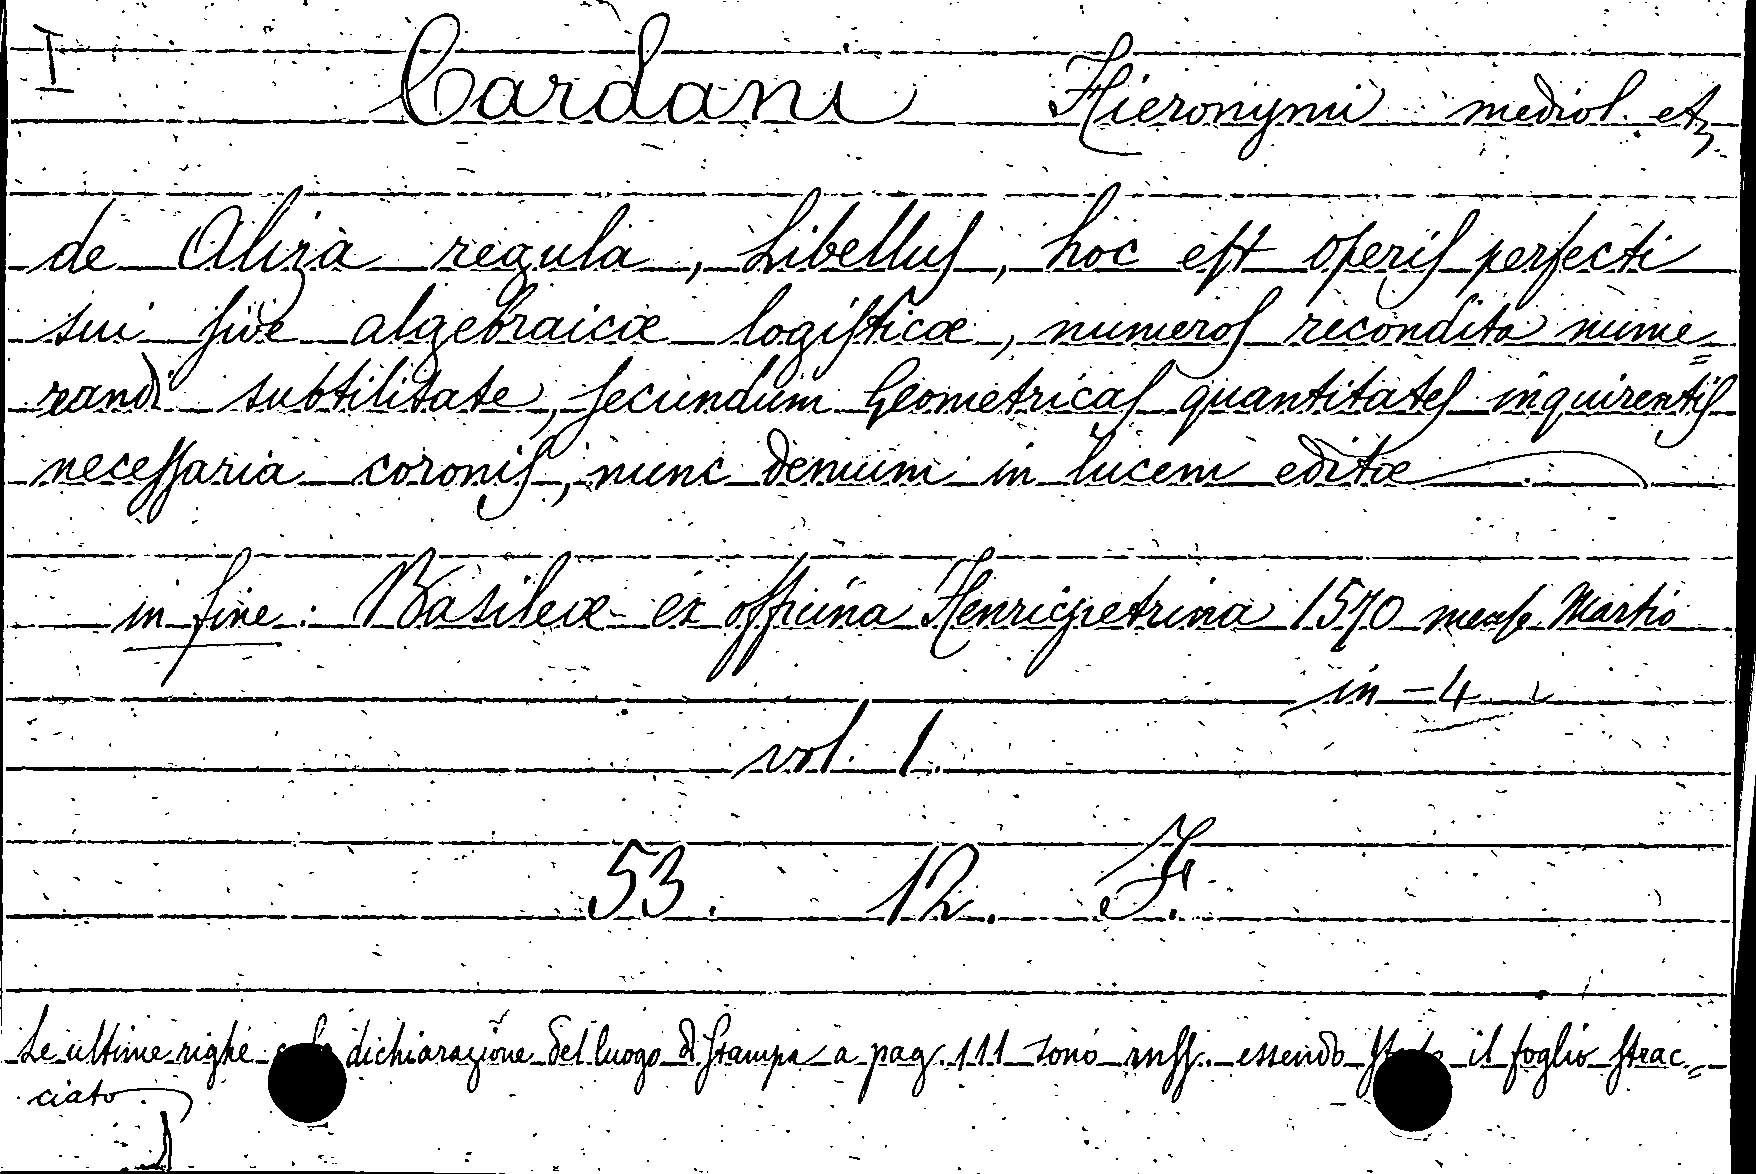 I Cardani Hieronymi mediol. etz
de Aliza regula, Libellus, hoc est operis perfecti
sui sive algebraicæ logisticæ, numeros recondita nume=
randi subtilitate, secundum Geometricas quantitates inquirentis
necessaria coronis, nunc demum in lucem editæ
in fine: Basileæ ex officina Henricpetrina 1570 mense Martio
in-4
vol. 1.
53. 12. F.
Le ultime righe e la dichiarazione del luogo di stampa a pag. 111 sono mss. essendo stato il foglio strac=
ciato